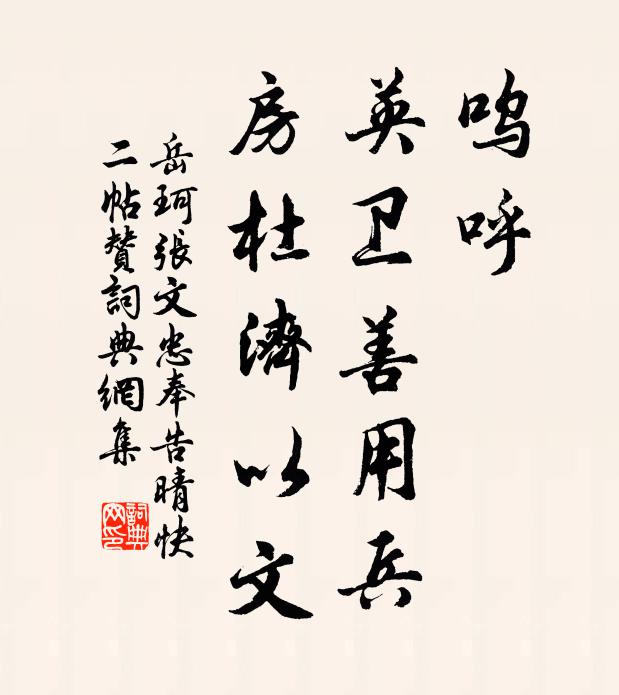 呜呼
英卫善用兵
房杜濟以文
岳珂張文忠奉告晴快
二帖贊詞典網集
詞典网印